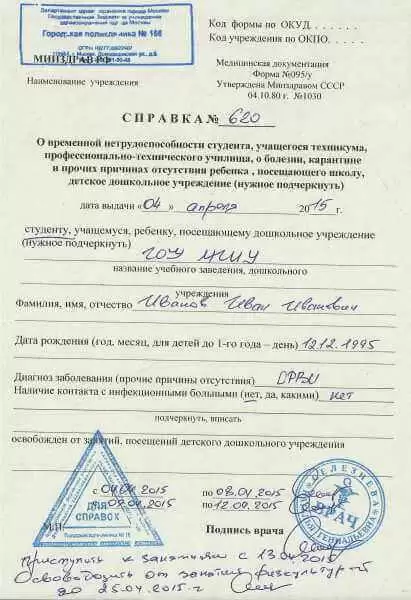 Департамент здравоохранения города Москвы
Государственное бюджетное учреждение
здравоохранения города Москвы
Городская поликлиника № 166
МИНЗДРАВ РФ
Наименование учреждения
Код формы по ОКУД. . . . . . .
Код учреждения по ОКПО. . . . .
Медицинская документация
Форма №095/у
Утверждена Минздравом СССР
04.10.80 г. №1030
СПРАВКА № 620
О временной нетрудоспособности студента, учащегося техникума,
профессионально-технического училища, о болезни, карантине
и прочих причинах отсутствия ребенка , посещающего школу,
детское дошкольное учреждение (нужное подчеркнуть)
дата выдачи «04» апреля 2015 г.
студенту, учащемуся, ребенку, посещающему дошкольное учреждение
(нужное подчеркнуть)
ГОУ МГИУ
название учебного заведения, дошкольного
учреждения
Фамилия, имя, отчество Иванов Иван Иванович
Дата рождения (год, месяц, для детей до 1-го года – день) 12.12.1995
Диагноз заболевания (прочие причины отсутствия) ОРВИ
Наличие контакта с инфекционными больными (нет, да, какими) нет
подчеркнуть, вписать
освобожден от занятий, посещений детского дошкольного учреждения
с 04.04.2015 по 08.04.2015
с 09.04.2015 по 12.04.2015
ДЛЯ
СПРАВОК
М.П.
Подпись врача
СЕЛЕЗНЕВА
ГЕННАДЬЕВНА
ВРАЧ
Приступить к занятиям с 13.04.2015
Освободить от занятий физкультурой
до 25.04.2015 г.